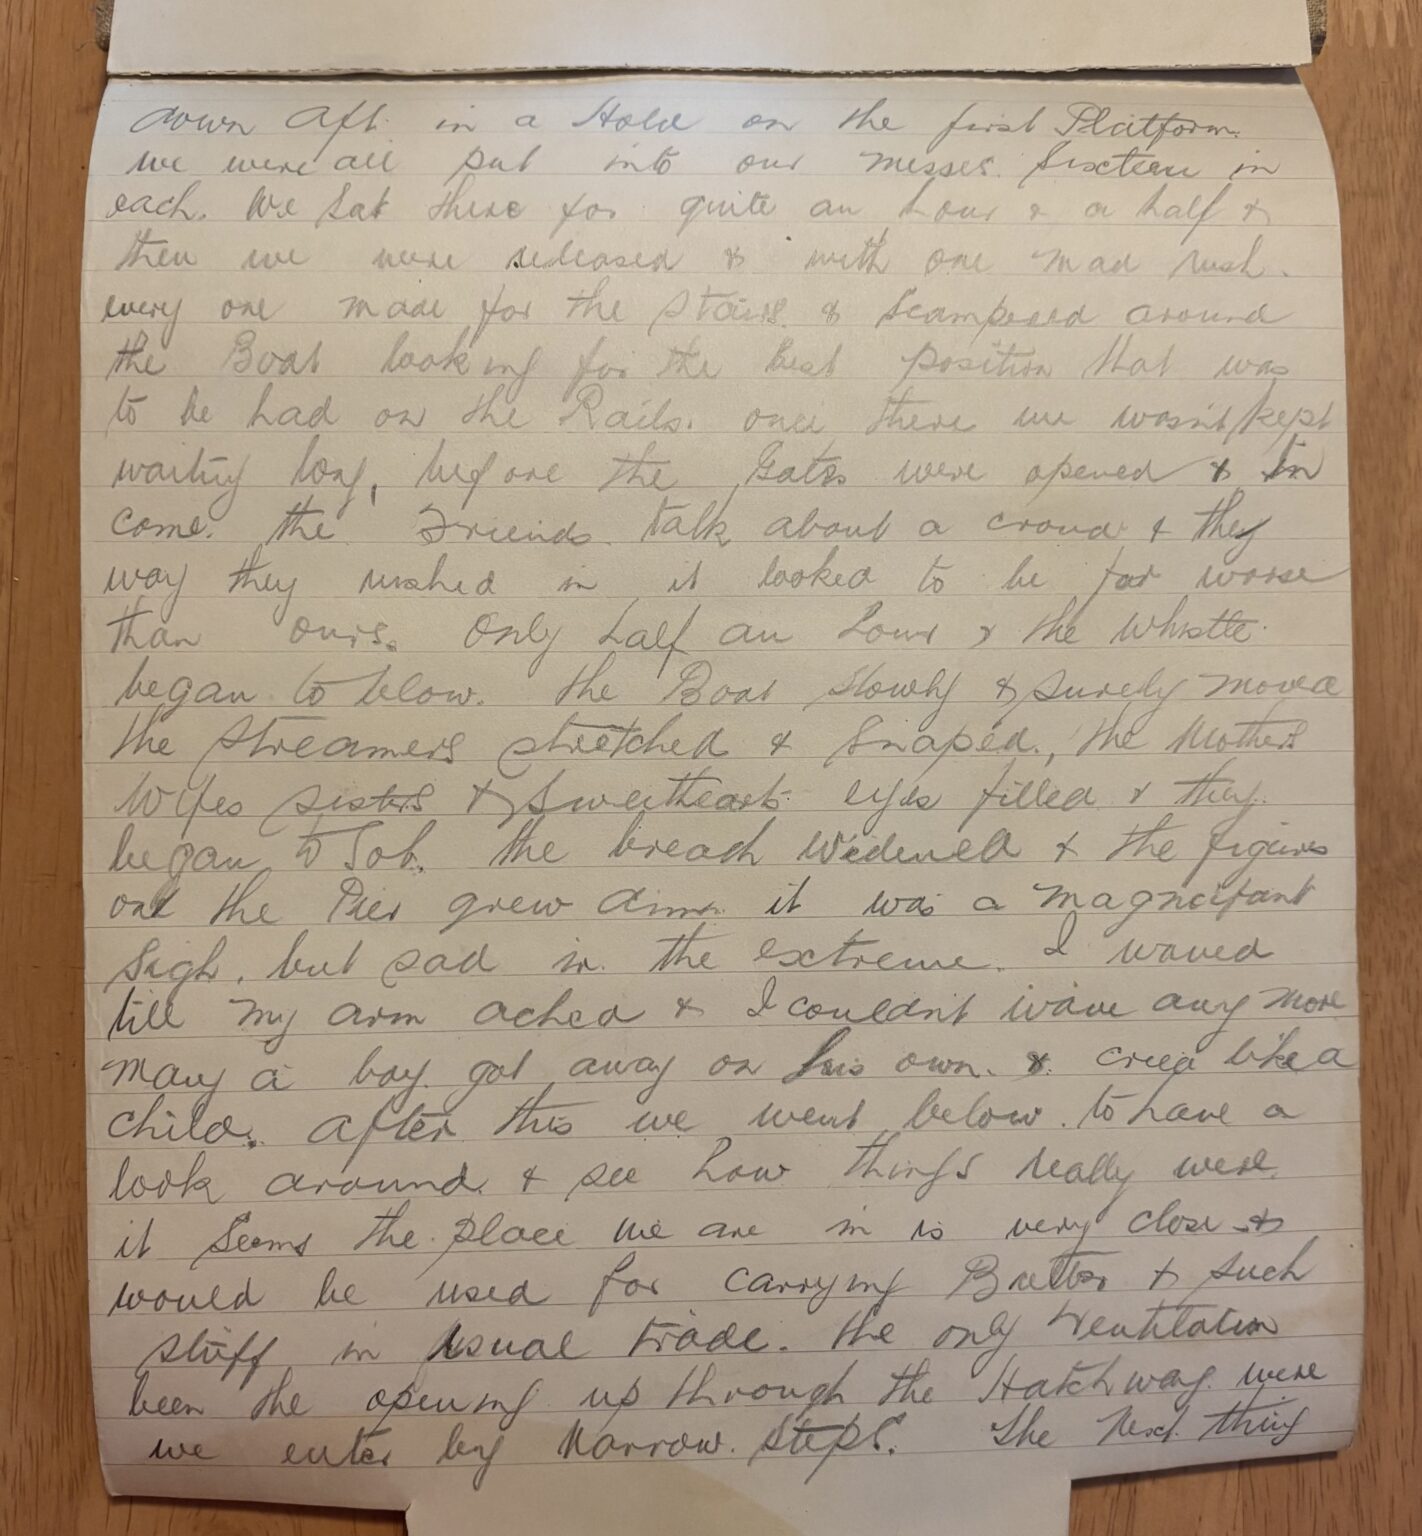 down Aft. in a Hold on the first Platform.
we were all put into our messes. Sixteen in
each. We Sat there for quite an hour & a half &
then we were released & with one mad rush.
every one made for the stairs. & Scampered around
the Boat looking for the best position that was
to be had on the Rails. once there we wasn't kept
waiting long, before the Gates were opened & In
come. the Friends. talk about a crowd & they
way they rushed in it looked to be far worse
than ours. Only half an hour & the whistle
began to blow. the Boat slowly & surely moved
the streamers stretched & Snaped., the Mothers
Wifes sisters & Sweethearts. eyes filled & they.
began to Sob. the breach Widened & the figures
on the Pier grew dim. it was a magnifant
Sigh. but sad in. the extreme. I waved
till my arm ached & I couldn't wave any more
many a boy. got away on his own. & cried like a
child. after this we went below. to have a
look around. & see how things really were.
it Seems the place we are in is very close &
would be used for carrying Butter & such
stuff in usual trade. the only Ventilation
been the opening up through the Hatchway. were
we enter by Narrow. Steps. The Next. thing